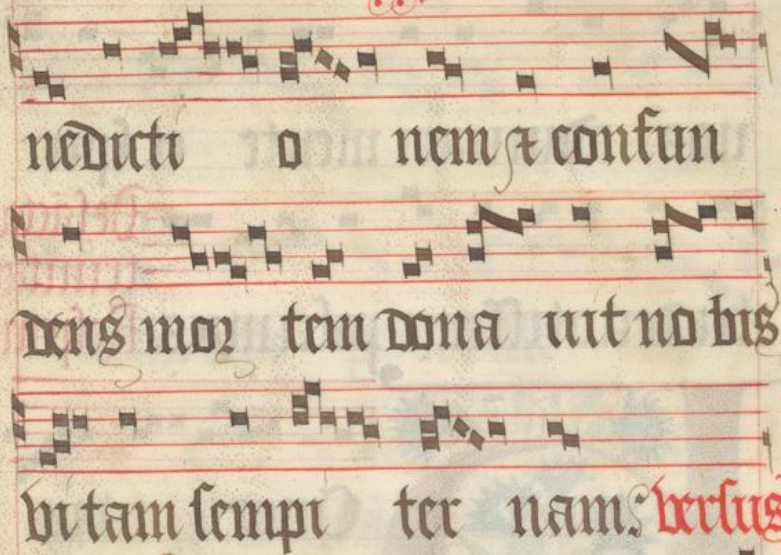 nedicti o nem ⁊ confun
dens mor tem dona uit no bis
vi tam sempi ter nam. versus